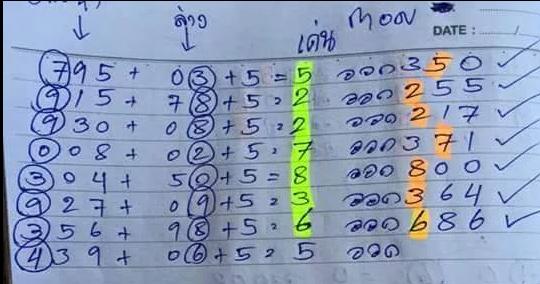 ล่าง
เด่น
DATE :
795 + 03 + 5 = 5 ออก 350
915 + 78 + 5 = 2 ออก 255
930 + 08 + 5 = 2 ออก 217
008 + 02 + 5 = 7 ออก 371
304 + 50 + 5 = 8 ออก 800
927 + 09 + 5 = 3 ออก 364
356 + 98 + 5 = 6 ออก 686
439 + 06 + 5 = 5 ออก